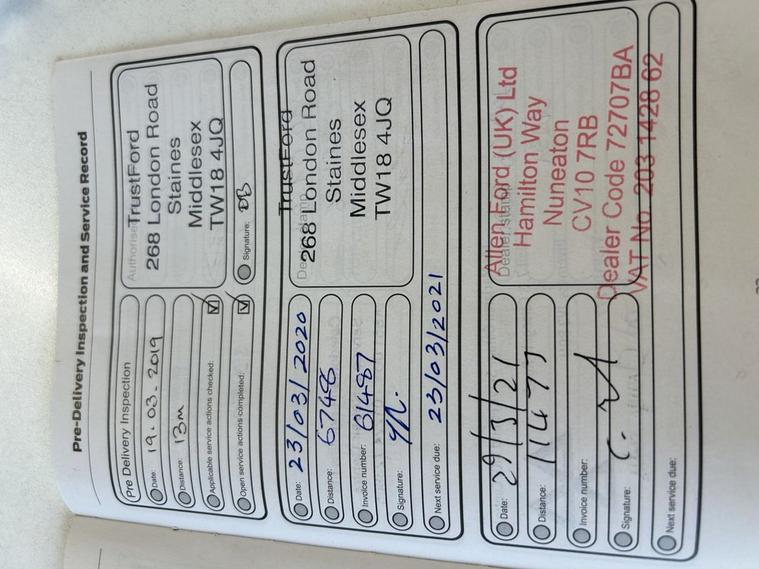 Pre-Delivery Inspection and Service Record
Pre Delivery Inspection
Date: 19.03.2019
Distance: 13m
Applicable service actions checked:
Open service actions completed:
TrustFord
268 London Road
Staines
Middlesex
TW18 4JQ
Signature: DB
Date: 23/03/2020
Distance: 6748
Invoice number: 61487
Signature:
Next service due: 23/03/2021
TrustFord
268 London Road
Staines
Middlesex
TW18 4JQ
Date: 29/3/21
Distance: 11477
Invoice number:
Signature:
Next service due:
Dealer stamp
Allen Ford (UK) Ltd
Hamilton Way
Nuneaton
CV10 7RB
Dealer Code 72707BA
VAT No. 203 1428 62